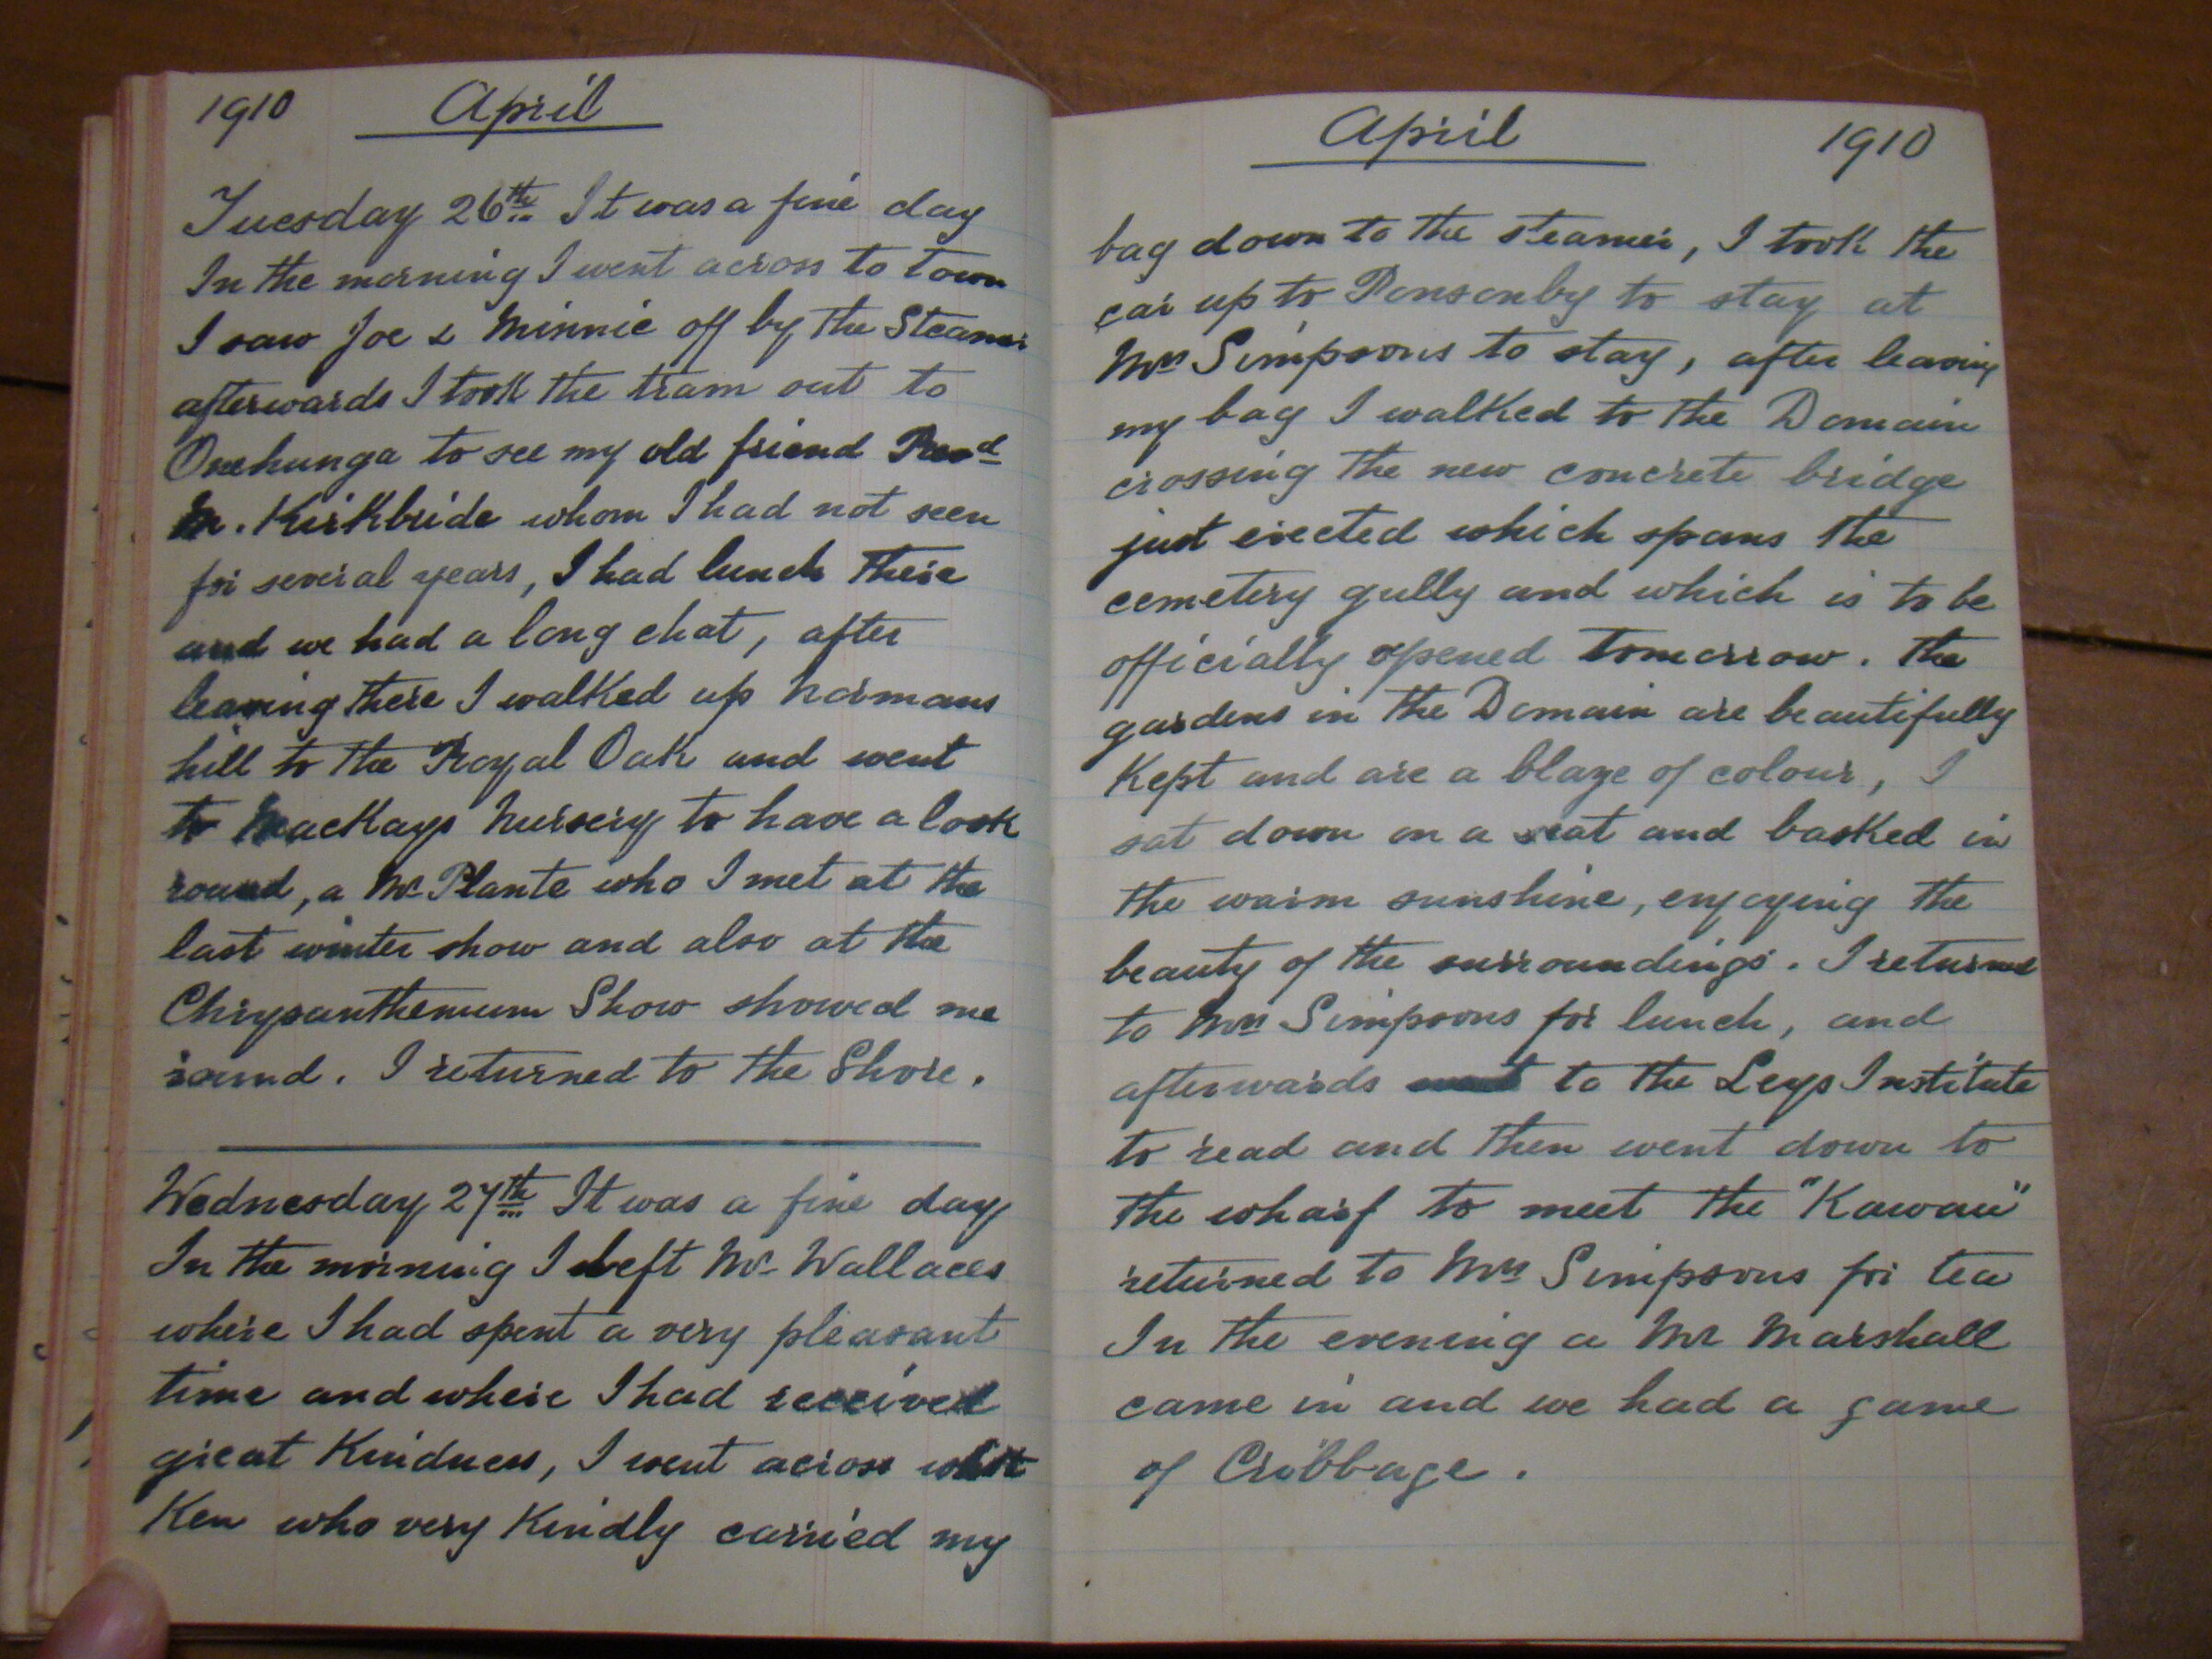 1910 April
Tuesday 26th It was a fine day
In the morning I went across to town
I saw Joe & Minnie off by the Steamer
afterwards I took the tram out to
Onehunga to see my old friend
M. Kirkbride whom I had not seen
for several years, I had lunch there
and we had a long chat, after
leaving there I walked up Normans
hill to the Royal Oak and went
to Mackays Nursery to have a look
round, a Mr Plante who I met at the
last winter show and also at the
Chrysanthemum Show showed me
round. I returned to the Shore.
Wednesday 27th It was a fine day
In the morning I left Mr Wallaces
where I had spent a very pleasant
time and where I had received
great Kindness, I went across with
Ken who very Kindly carried my
April 1910
bag down to the steamer, I took the
car up to Ponsonby to stay at
Mrs Simpsons to stay, after leaving
my bag I walked to the Domain
crossing the new concrete bridge
just erected which spans the
cemetery gully and which is to be
officially opened tomorrow. The
gardens in the Domain are beautifully
Kept and are a blaze of colour, I
sat down on a seat and basked in
the warm sunshine, enjoying the
beauty of the surroundings. I returned
to Mrs Simpsons for lunch, and
afterwards went to the Leys Institute
to read and then went down to
the wharf to meet the "Kawau"
returned to Mrs Simpsons for tea
In the evening a Mr Marshall
came in and we had a game
of Cribbage.